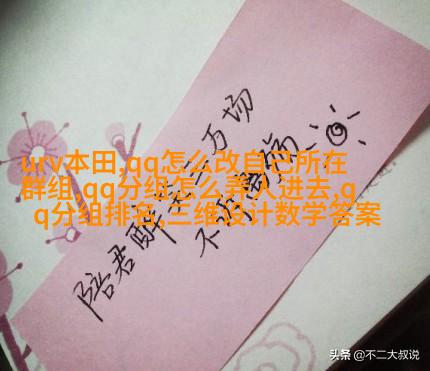 urv本田,qq怎么改自己所在
群组,qq分组怎么弄人进去,q
q分组排名,三维设计数学答案
陪君醉万场
不
头条 @不二大叔说